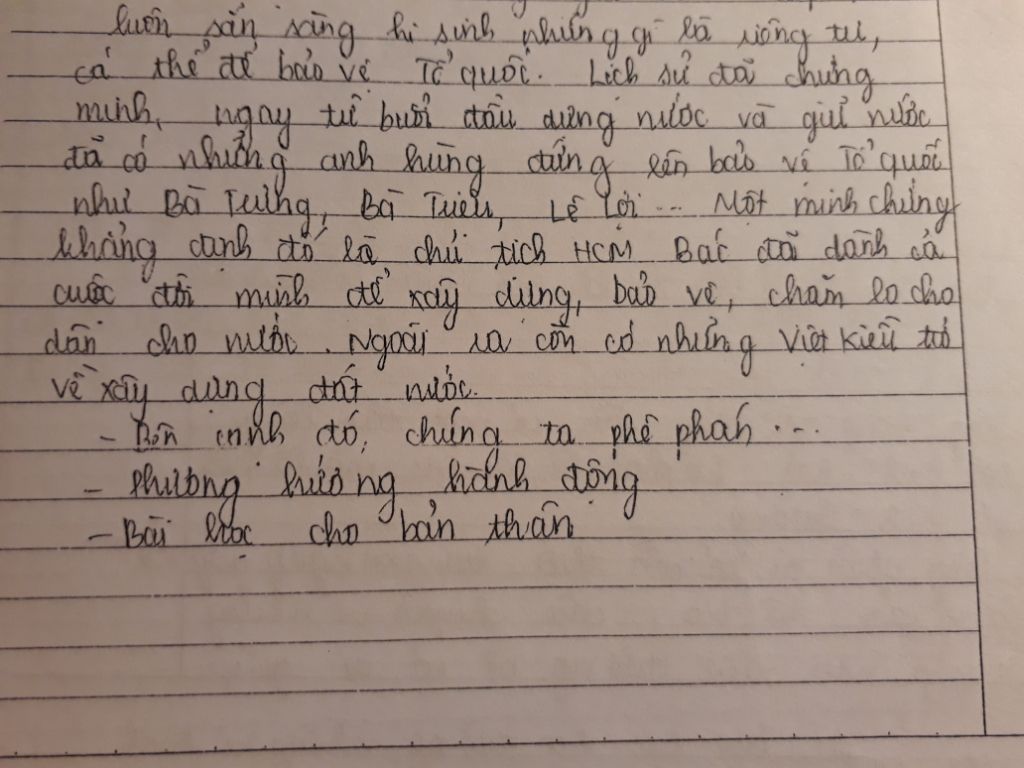 luôn sẵn sàng hi sinh những gì là riêng tư,
cá thể để bảo vệ Tổ quốc. Lịch sử đã chứng
minh, ngay từ buổi đầu dựng nước và giữ nước
đã có những anh hùng đứng lên bảo vệ Tổ quốc
như Bà Trưng, Bà Triệu, Lê Lợi... Một minh chứng
khẳng định đó là chủ tịch HCM Bác đã dành cả
cuộc đời mình để xây dựng, bảo vệ, chăm lo cho
dân cho nước. Ngoài ra còn có những Việt kiều trở
về xây dựng đất nước.
- Bên cạnh đó, chúng ta phê phán ...
- Phương hướng hành động
- Bài học cho bản thân